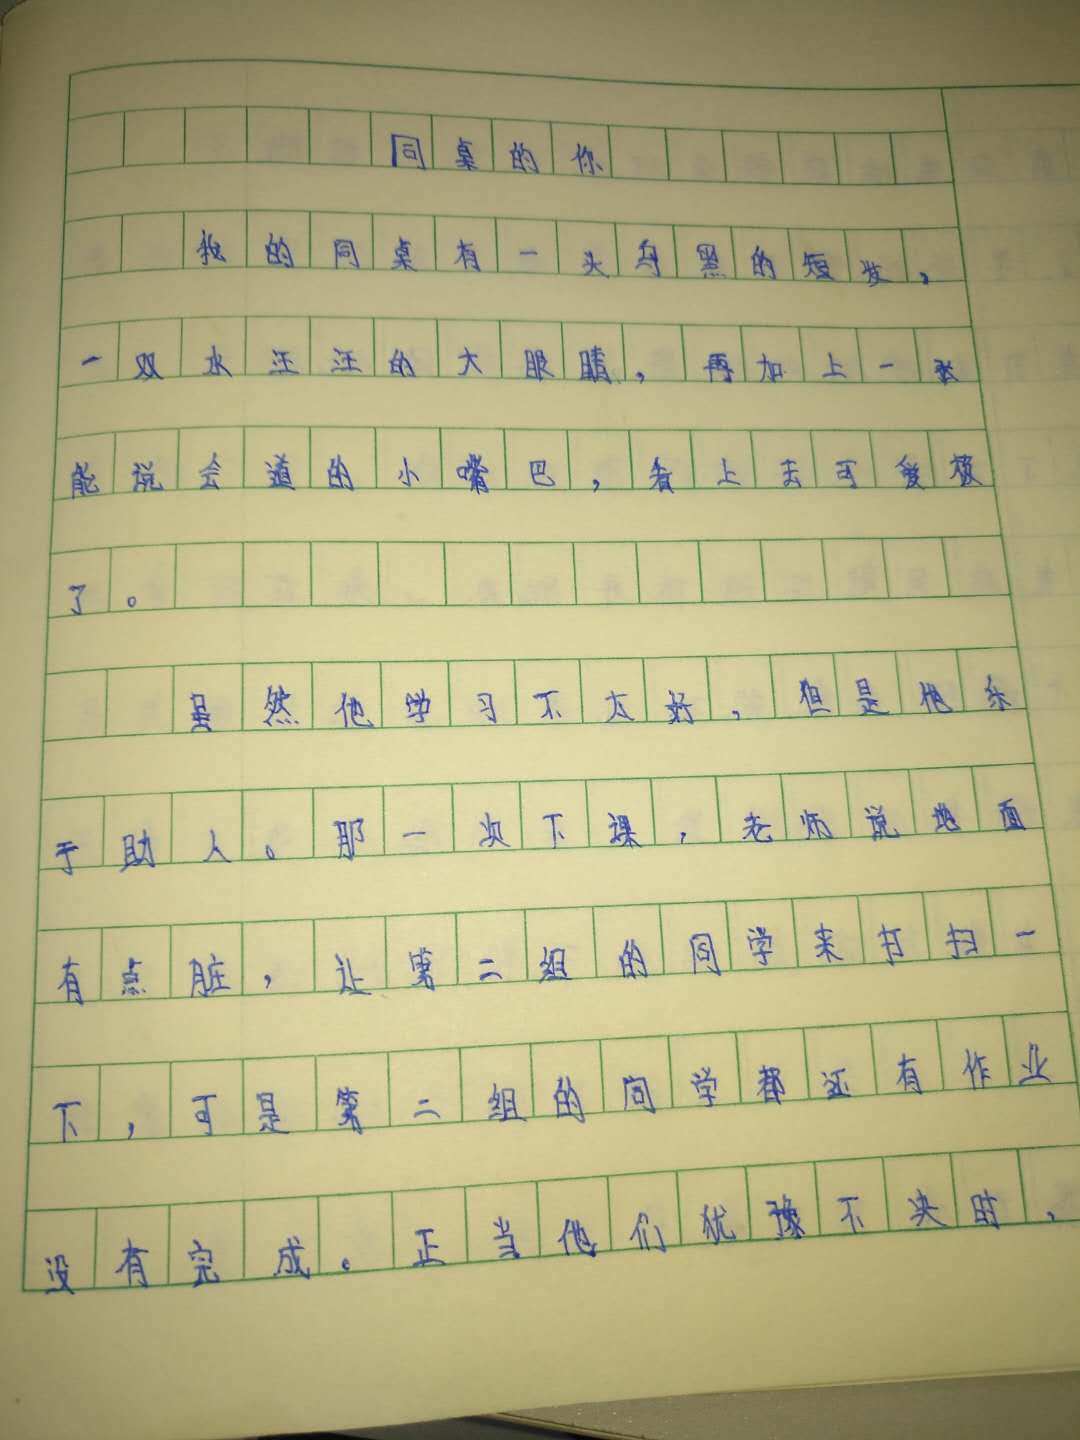 同桌的你
我的同桌有一头乌黑的短发，
一双水汪汪的大眼睛，再加上一张
能说会道的小嘴巴，看上去可爱极
了。
虽然他学习不太好，但是他乐
于助人。那一次下课，老师说地面
有点脏，让第二组的同学来打扫一
下，可是第二组的同学都还有作业
没有完成。正当他们犹豫不决时，